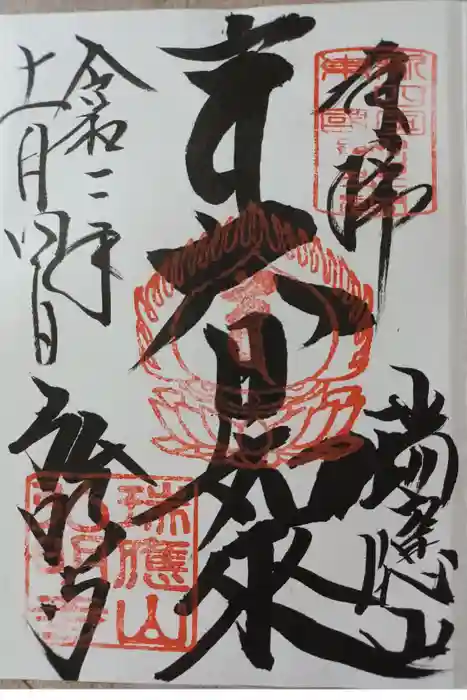 奉拝
瑞應山
大日如来
令和二年
十一月四日
弘明寺
瑞應山
弘明寺